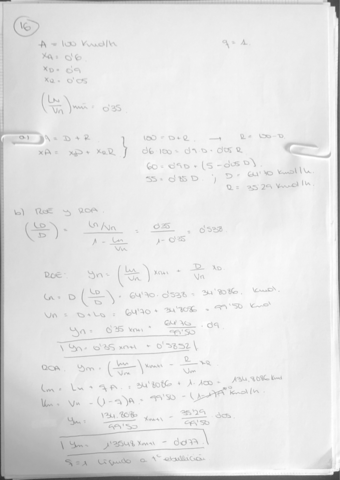 16
A = 100 Kmol/h    q = 1
xA = 0'6
xD = 0'9
xR = 0'05
(Ln/Vn) min = 0'35
a) A = D + R } 100 = D + R → R = 100 - D
xA = xD + xR R 0'6·100 = 0'9·D + 0'05 R
60 = 0'9D + (5 - 0'05 D)
55 = 0'85 D ; D = 64'70 Kmol/h
R = 35'29 Kmol/h
b) ROE y ROA.
(Lo/D) = (Ln/Vn)/(1 - Ln/Vn) = 0'35/(1 - 0'35) = 0'538
ROE: yn = (Ln/Vn) xn+1 + D/Vn xD
Ln = D (Lo/D) = 64'70 · 0'538 = 34'8086 Kmol.
Vn = D + Lo = 64'70 + 34'8086 = 99'50 Kmol
yn = 0'35 xn+1 + 64'70/99'50 0'9
yn = 0'35 xn+1 + 0'5852
ROA: ym = (Lm/Vm) xm+1 - R/Vm xR
Lm = Ln + qA = 34'8086 + 1·100 = 134'8086 Kmol
Vm = Vn - (1-q)A = 99'50 Kmol/h.
ym = 134'8086/99'50 xm+1 - 35'29/99'50 0'05
ym = 1'3548 xm+1 - 0'0177
q = 1 Líquido a Tª ebullición